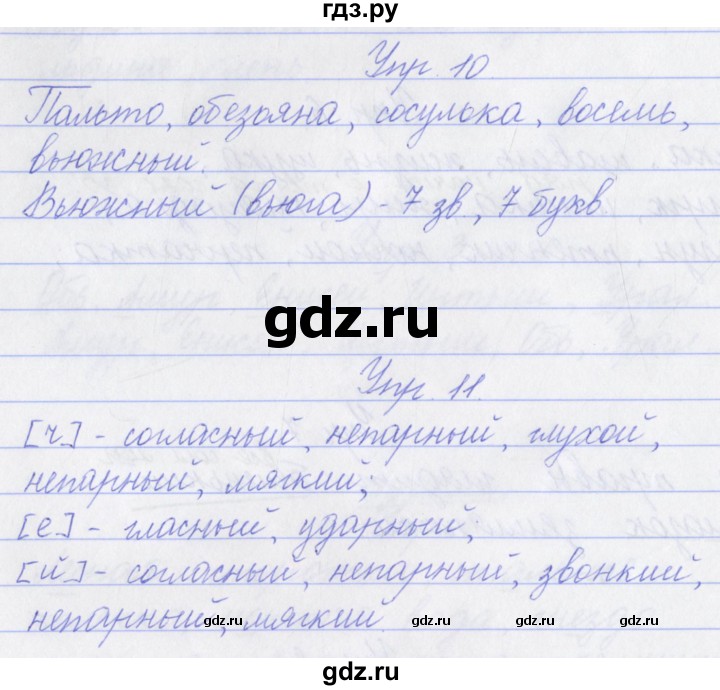 гдз.ру
Упр. 10.
Пальто, обезьяна, сосулька, восемь,
вьюжный.
Вьюжный (вьюга) - 7 зв, 7 букв
gdz.ru
Упр. 11.
[ч] - согласный, непарный, глухой,
непарный, мягкий;
[е] - гласный, ударный;
[й] - согласный, непарный, звонкий,
непарный, мягкий
gdz.ru gdz.ru gdz.ru
gdz.ru